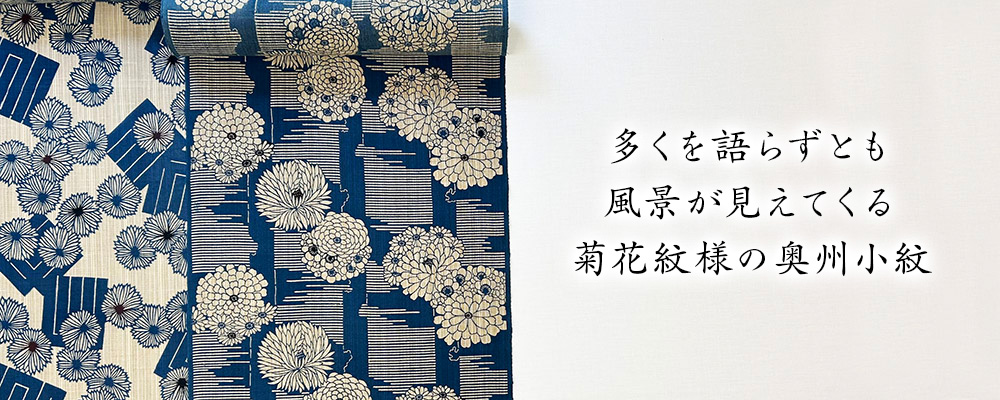 多くを語らずとも
風景が見えてくる
菊花紋様の奥州小紋